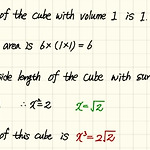 of the cube with volume 1 is 1.
area is 6×(1×1)=6
side length of the cube with sur
∴ x²=2 x=√2
of this cube is x³=2√2